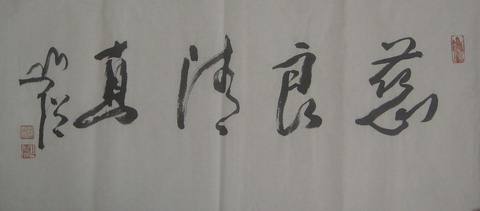 慈良清真